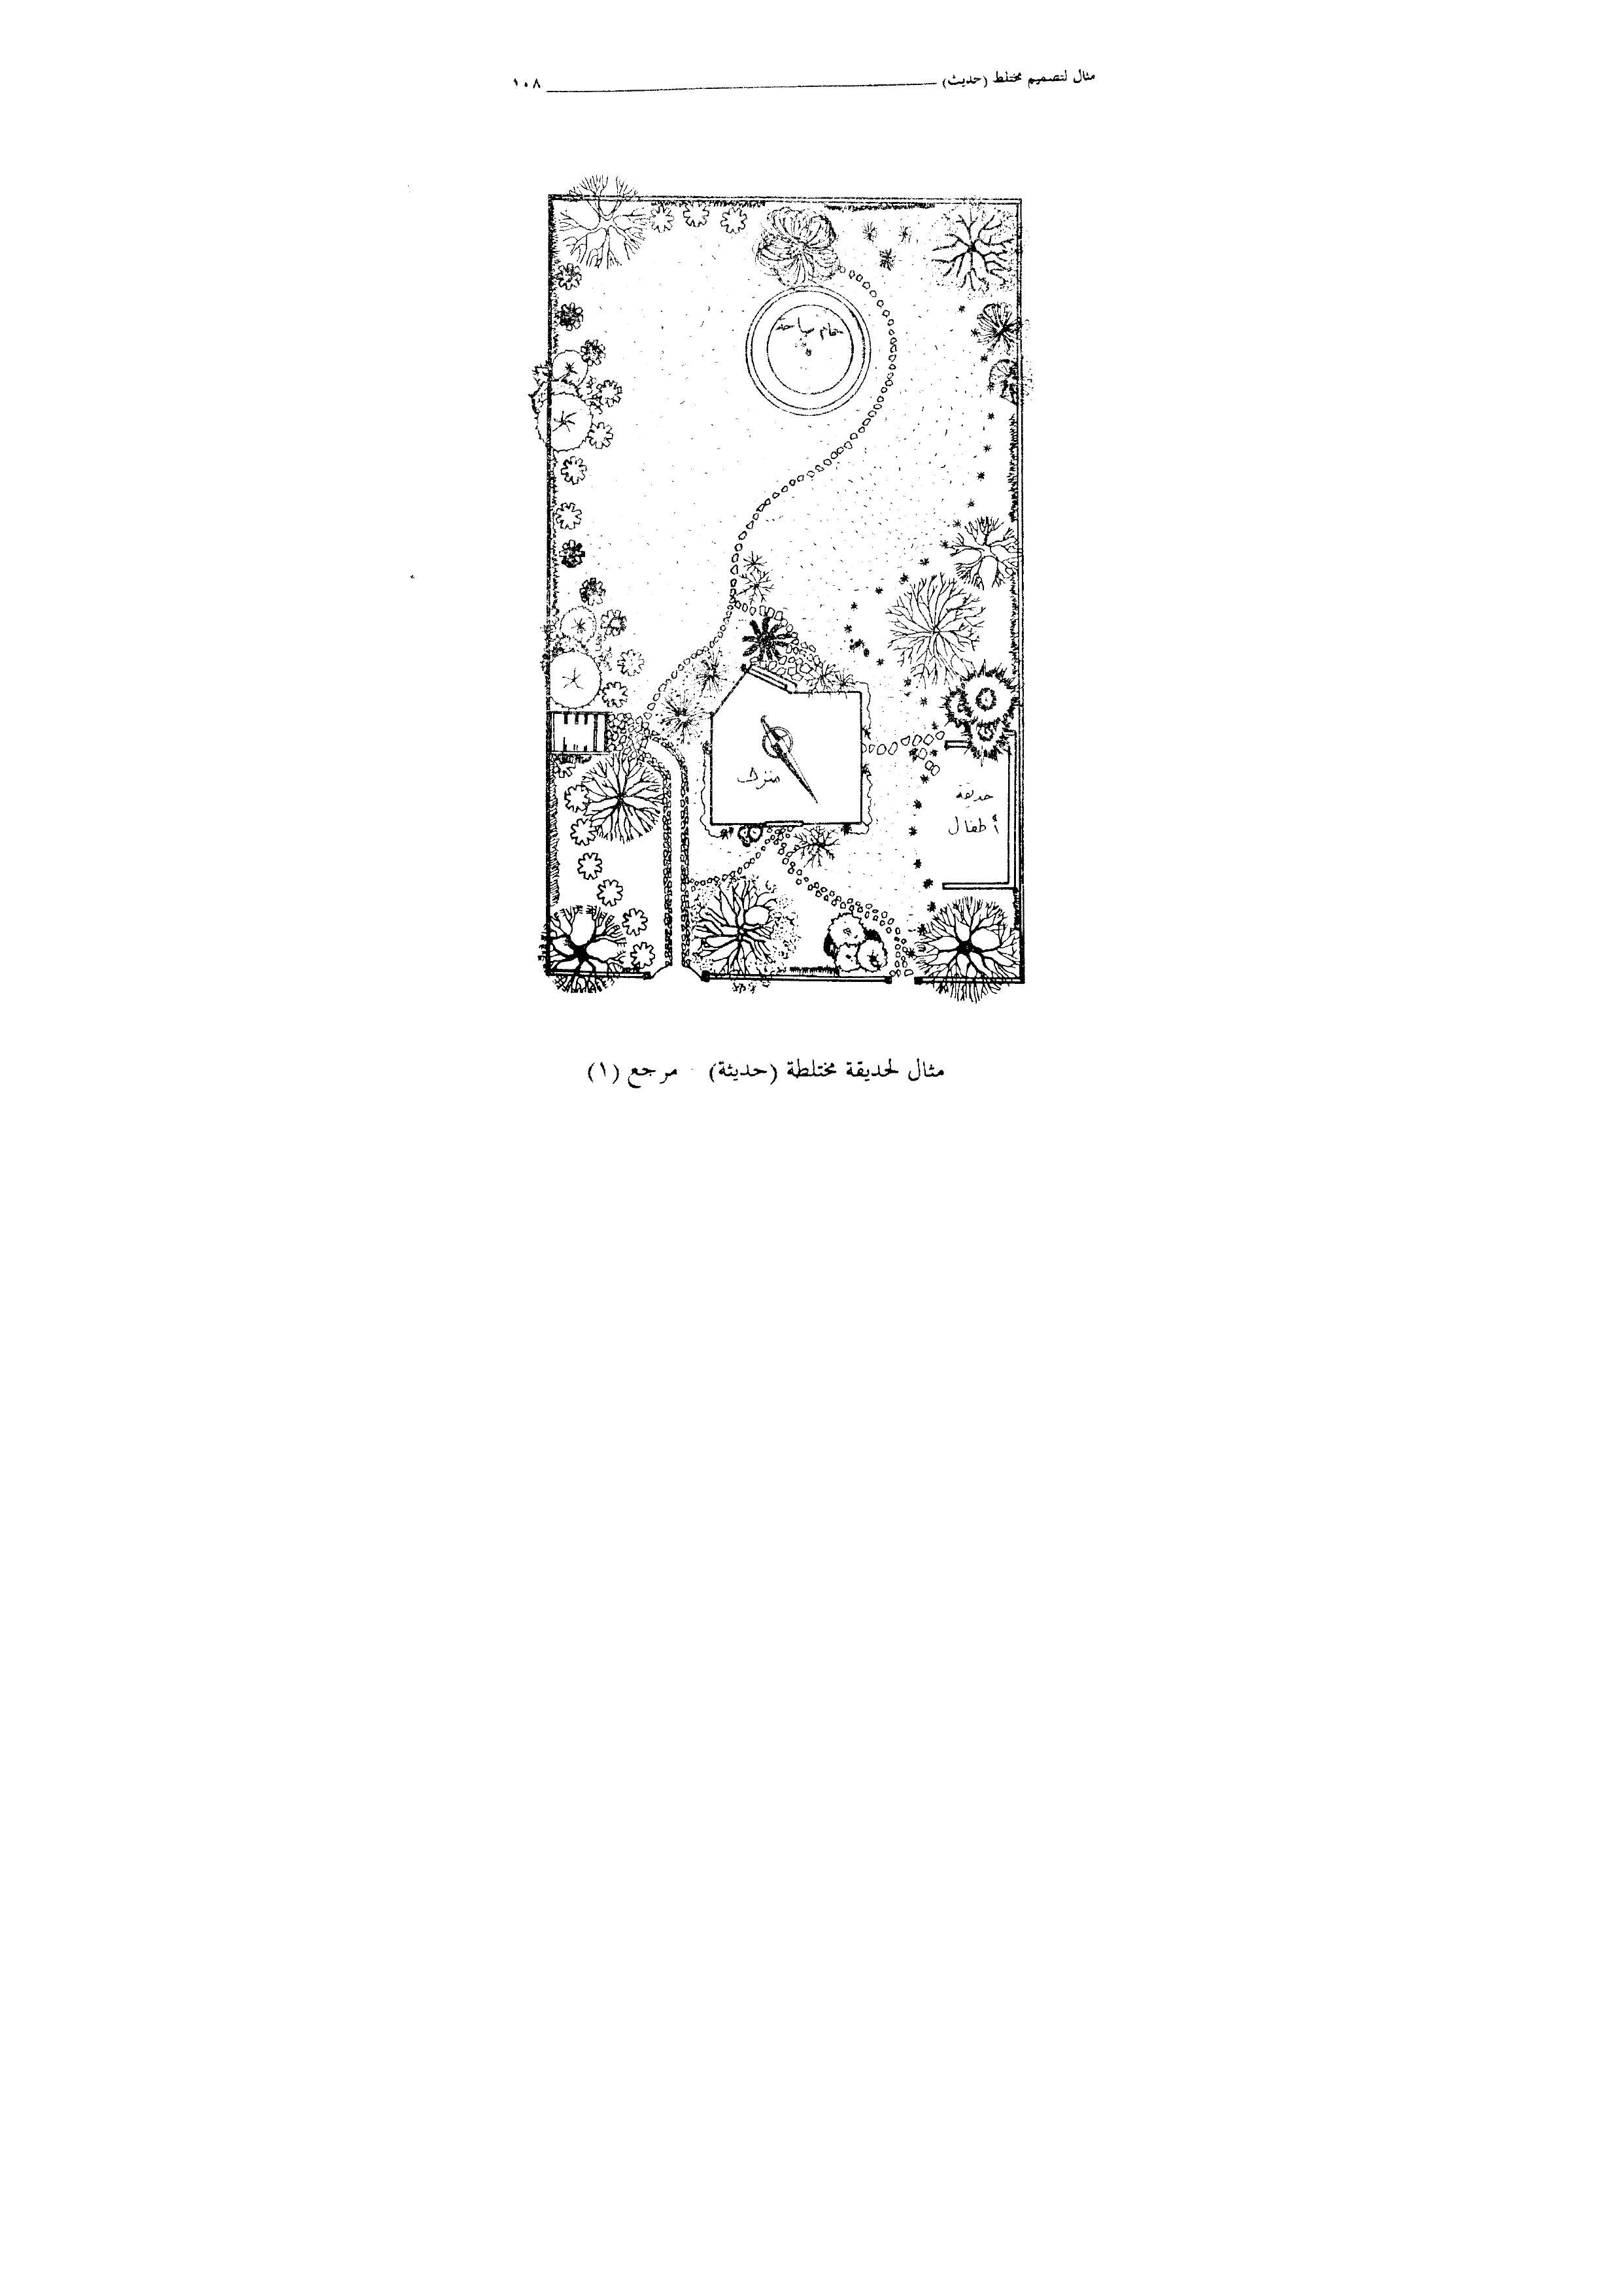 مثال لتصميم مختلط (حديث) ١٠٨
حمام سباحة
منزل
حديقة
أطفال
مثال لحديقة مختلطة (حديثة) مرجع (١)